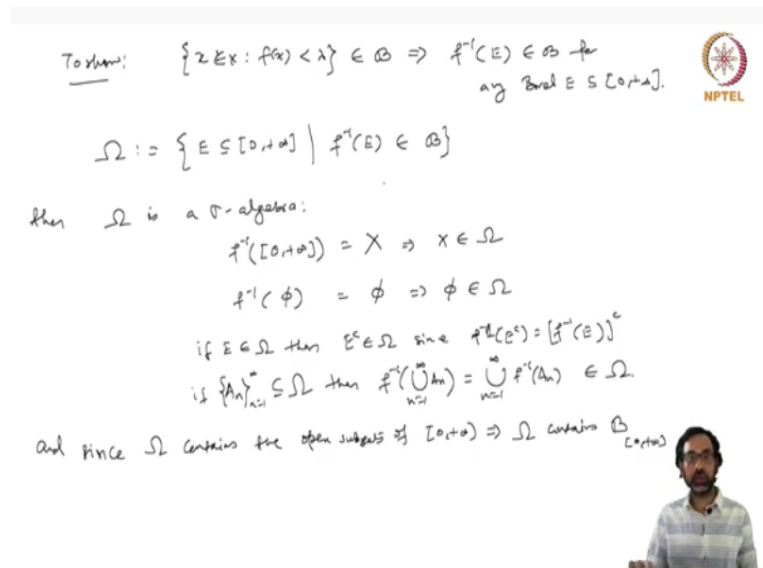 To show: {x ∈ X : f(x) < λ} ∈ B ⇒ f⁻¹(E) ∈ B for
any Borel E ⊆ [0,+∞].
NPTEL
Ω := {E ⊆ [0,+∞] | f⁻¹(E) ∈ B}
then Ω is a σ-algebra:
f⁻¹([0,+∞]) = X ⇒ X ∈ Ω
f⁻¹(φ) = φ ⇒ φ ∈ Ω
if E ∈ Ω then Eᶜ ∈ Ω since f⁻¹(Eᶜ) = [f⁻¹(E)]ᶜ
if {Aₙ}ₙ₌₁^∞ ⊆ Ω then f⁻¹(⋃ₙ₌₁^∞ Aₙ) = ⋃ₙ₌₁^∞ f⁻¹(Aₙ) ∈ Ω.
and since Ω contains the open subsets of [0,+∞) ⇒ Ω contains B_[0,+∞]